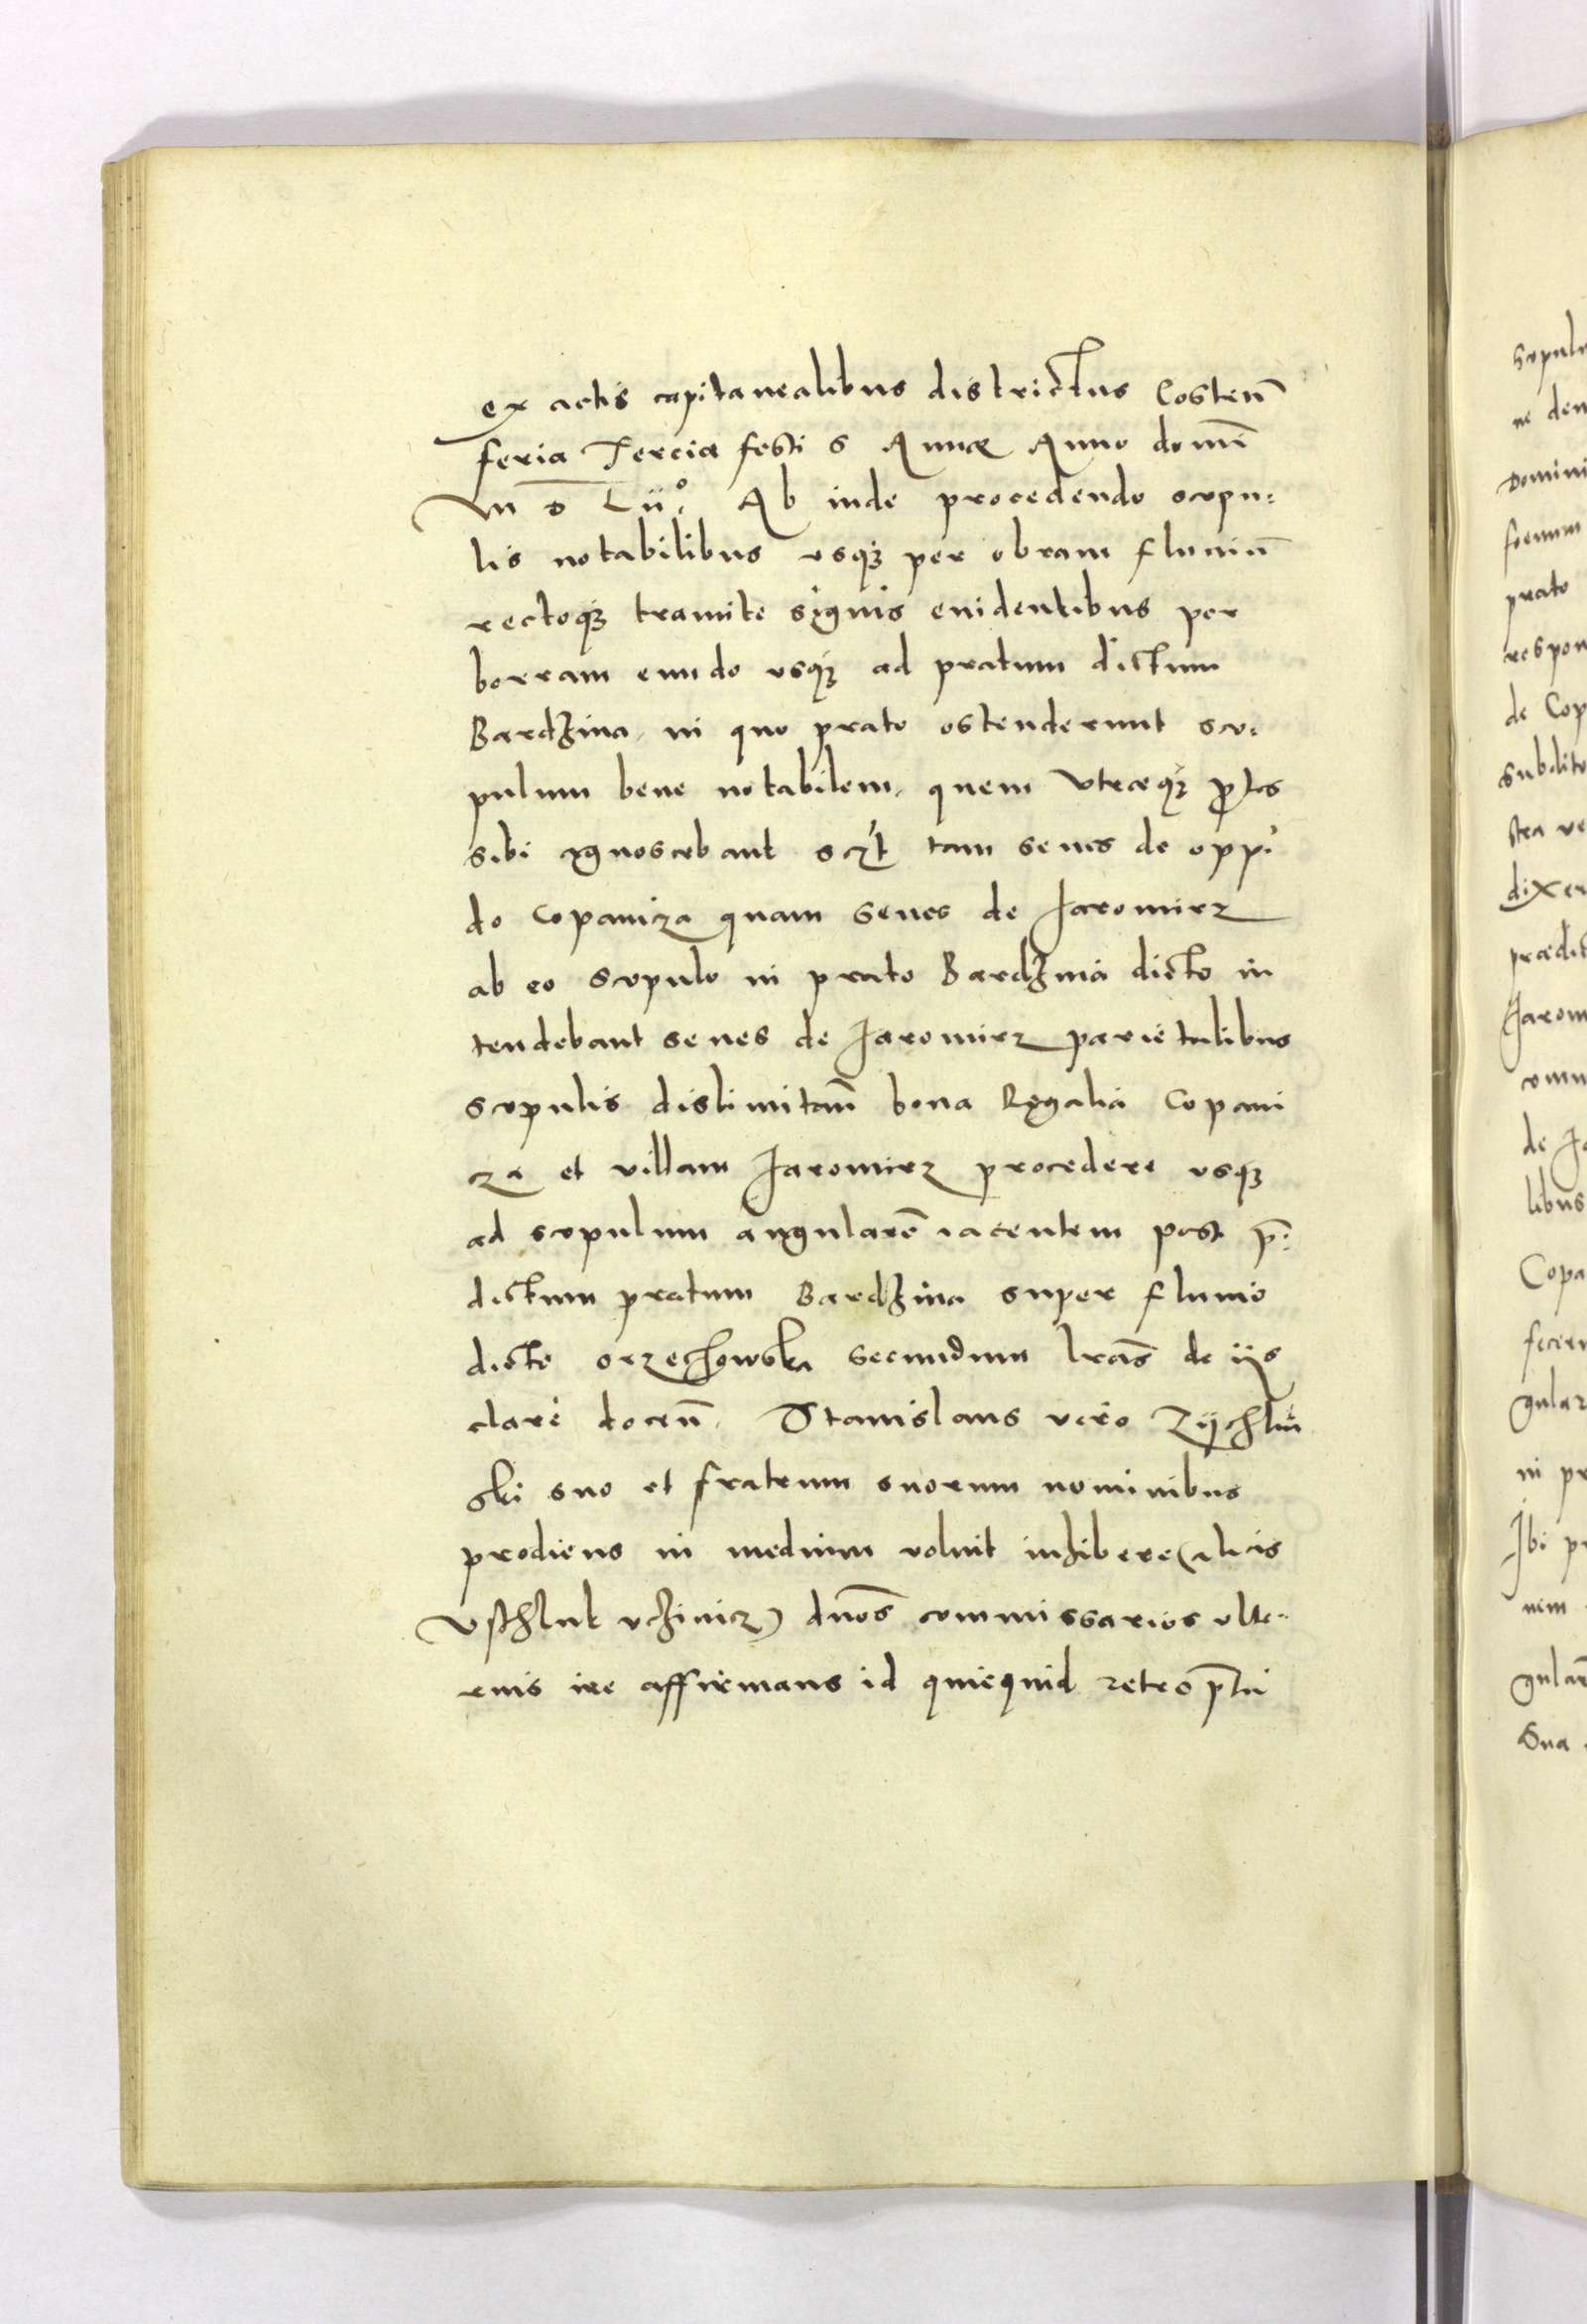 ex actis capitanealibus districtus Costen̄
feria Tercia festi S Annæ Anno domī
M D Lii°. Ab inde procedendo scopu:
lis notabilibus usq₃ per obram fluuiū
rectoq₃ tramite signis euidentibus per
borram eundo usq₃ ad pratum dictum
Bardzina, in quo prato ostenderunt sco:
pulum bene notabilem, quem vtræq₃ ꝑtes
sibi cgnoscebant scz̃t tam senes de oppi
do Copanicza quam senes de Jaromirz
ab eo scopulo in prato Bardzina dicto in
tendebant senes de Jaromirz parietalibus
scopulis dislimitan̄ bona Regalia Copani
cza et villam Jaromirz procedere usq₃
ad scopulum angularē iacentem post p̄:
dictum pratum Bardzina super fluuio
dicto orzechowska secundum lrās de iis
clare docen̄. Stanislaus vero Zÿchliń
ski suo et fratrum suorum nominibus
prodiens in medium voluit inhibere (alias
Vschlut vczinicz) dnōs commissarios ulte:
rius ire affirmans id quicquid retro p̄tū
scopulu
ne den
Domini
foenum
prato
respon
de Cop
subdito
stra ve
dixer
prædic
Jarom
omn
de Ja
libus
Copa
fecer
gular
in pr
Ibi pr
nem
gularē
Sua